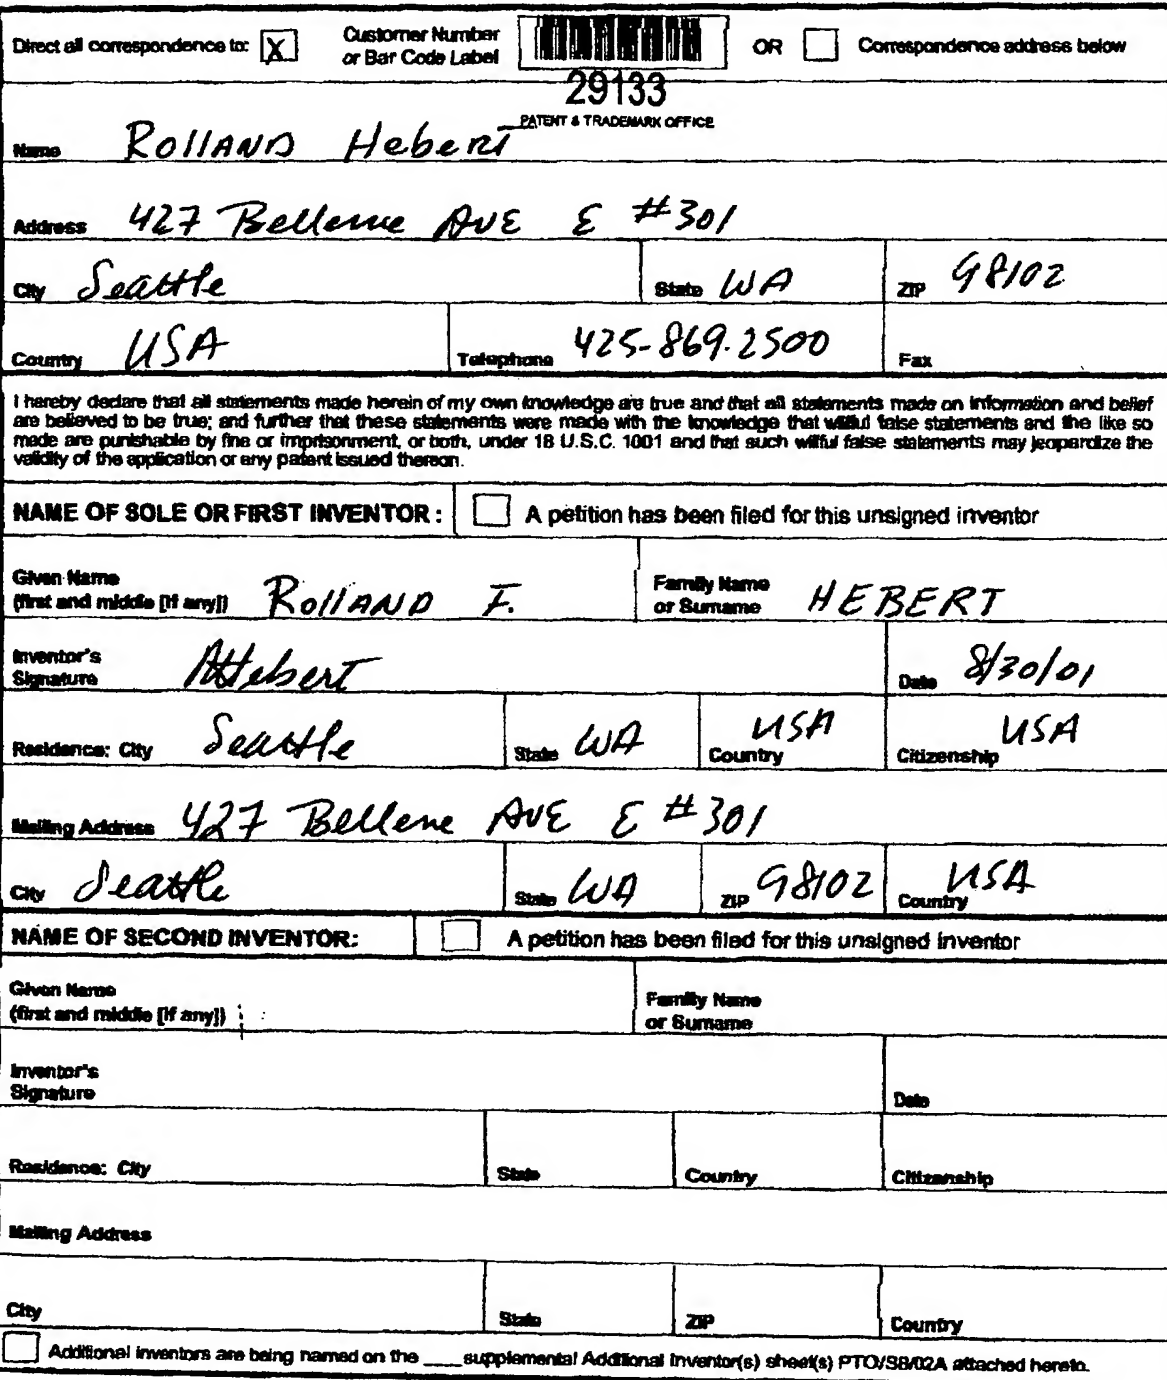 Direct all correspondence to: X Customer Number or Bar Code Label OR Correspondence address below
29133
PATENT & TRADEMARK OFFICE
Name Rolland Hebert
Address 427 Bellevue Ave E #301
City Seattle State WA ZIP 98102
Country USA Telephone 425-869-2500 Fax
I hereby declare that all statements made herein of my own knowledge are true and that all statements made on information and belief
are believed to be true; and further that these statements were made with the knowledge that willful false statements and the like so
made are punishable by fine or imprisonment, or both, under 18 U.S.C. 1001 and that such willful false statements may jeopardize the
validity of the application or any patent issued thereon.
NAME OF SOLE OR FIRST INVENTOR : A petition has been filed for this unsigned inventor
Given Name
(first and middle [if any]) Rolland F. Family Name or Surname HEBERT
Inventor's
Signature RHebert Date 8/30/01
Residence: City Seattle State WA Country USA Citizenship USA
Mailing Address 427 Bellevue Ave E #301
City Seattle State WA ZIP 98102 Country USA
NAME OF SECOND INVENTOR: A petition has been filed for this unsigned inventor
Given Name
(first and middle [if any]) Family Name or Surname
Inventor's
Signature Date
Residence: City State Country Citizenship
Mailing Address
City State ZIP Country
Additional inventors are being named on the ____supplemental Additional Inventor(s) sheet(s) PTO/SB/02A attached hereto.